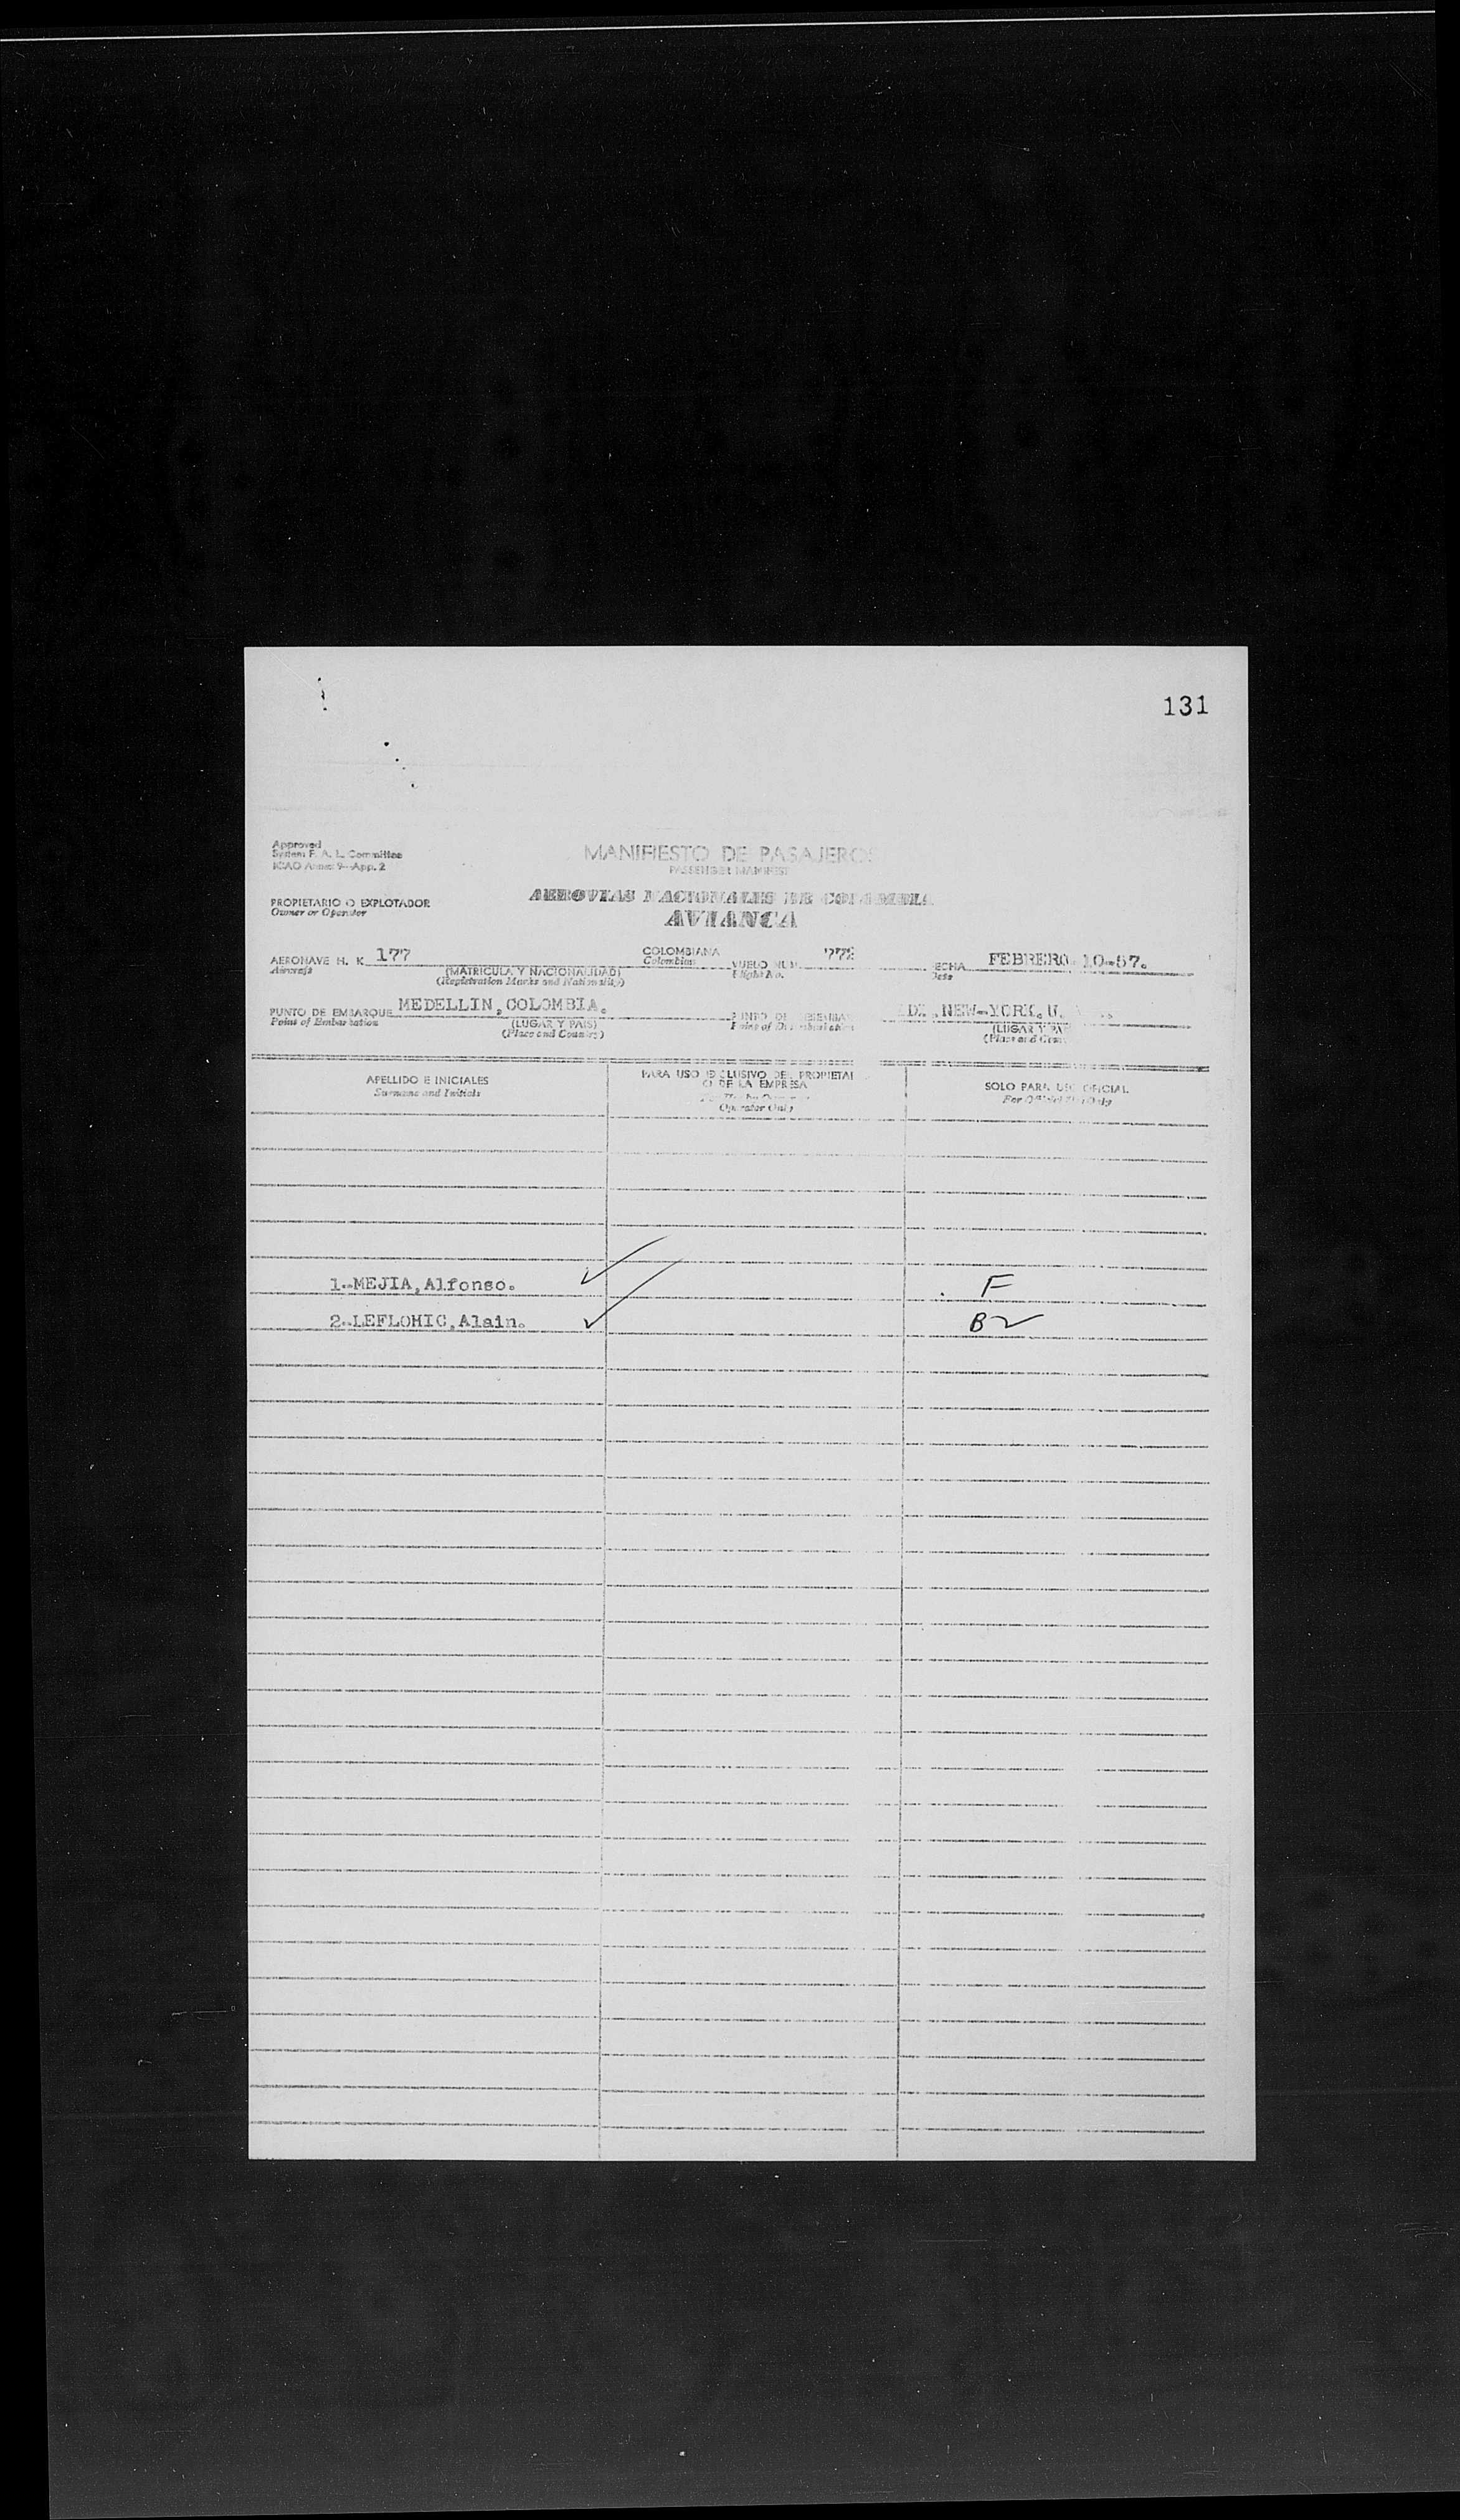 131
Approved
System F. A. L. Committee
ICAO Annex 9—App. 2
MANIFIESTO DE PASAJEROS
PASSENGER MANIFEST
PROPIETARIO O EXPLOTADOR
Owner or Operator
AEROVIAS NACIONALES DE COLOMBIA
AVIANCA
AERONAVE H. K 177 COLOMBIANA VUELO NUM. 772 FECHA FEBRERO 10-57.
Aircraft (MATRICULA Y NACIONALIDAD) Colombian Flight No. Date
(Registration Marks and Nationality)
PUNTO DE EMBARQUE MEDELLIN, COLOMBIA. PUNTO DE NEW-YORK. U.
Point of Embarkation (LUGAR Y PAIS) Point of (LUGAR Y PAIS)
(Place and Country) (Place and
APELLIDO E INICIALES PARA USO EXCLUSIVO DEL PROPIETAR SOLO PARA USO OFICIAL
Surname and Initials O DE LA EMPRESA For Official Use Only
Operator Only
1.-MEJIA, Alfonso. ✓ F
2.-LEFLOHIC, Alain. ✓ B2